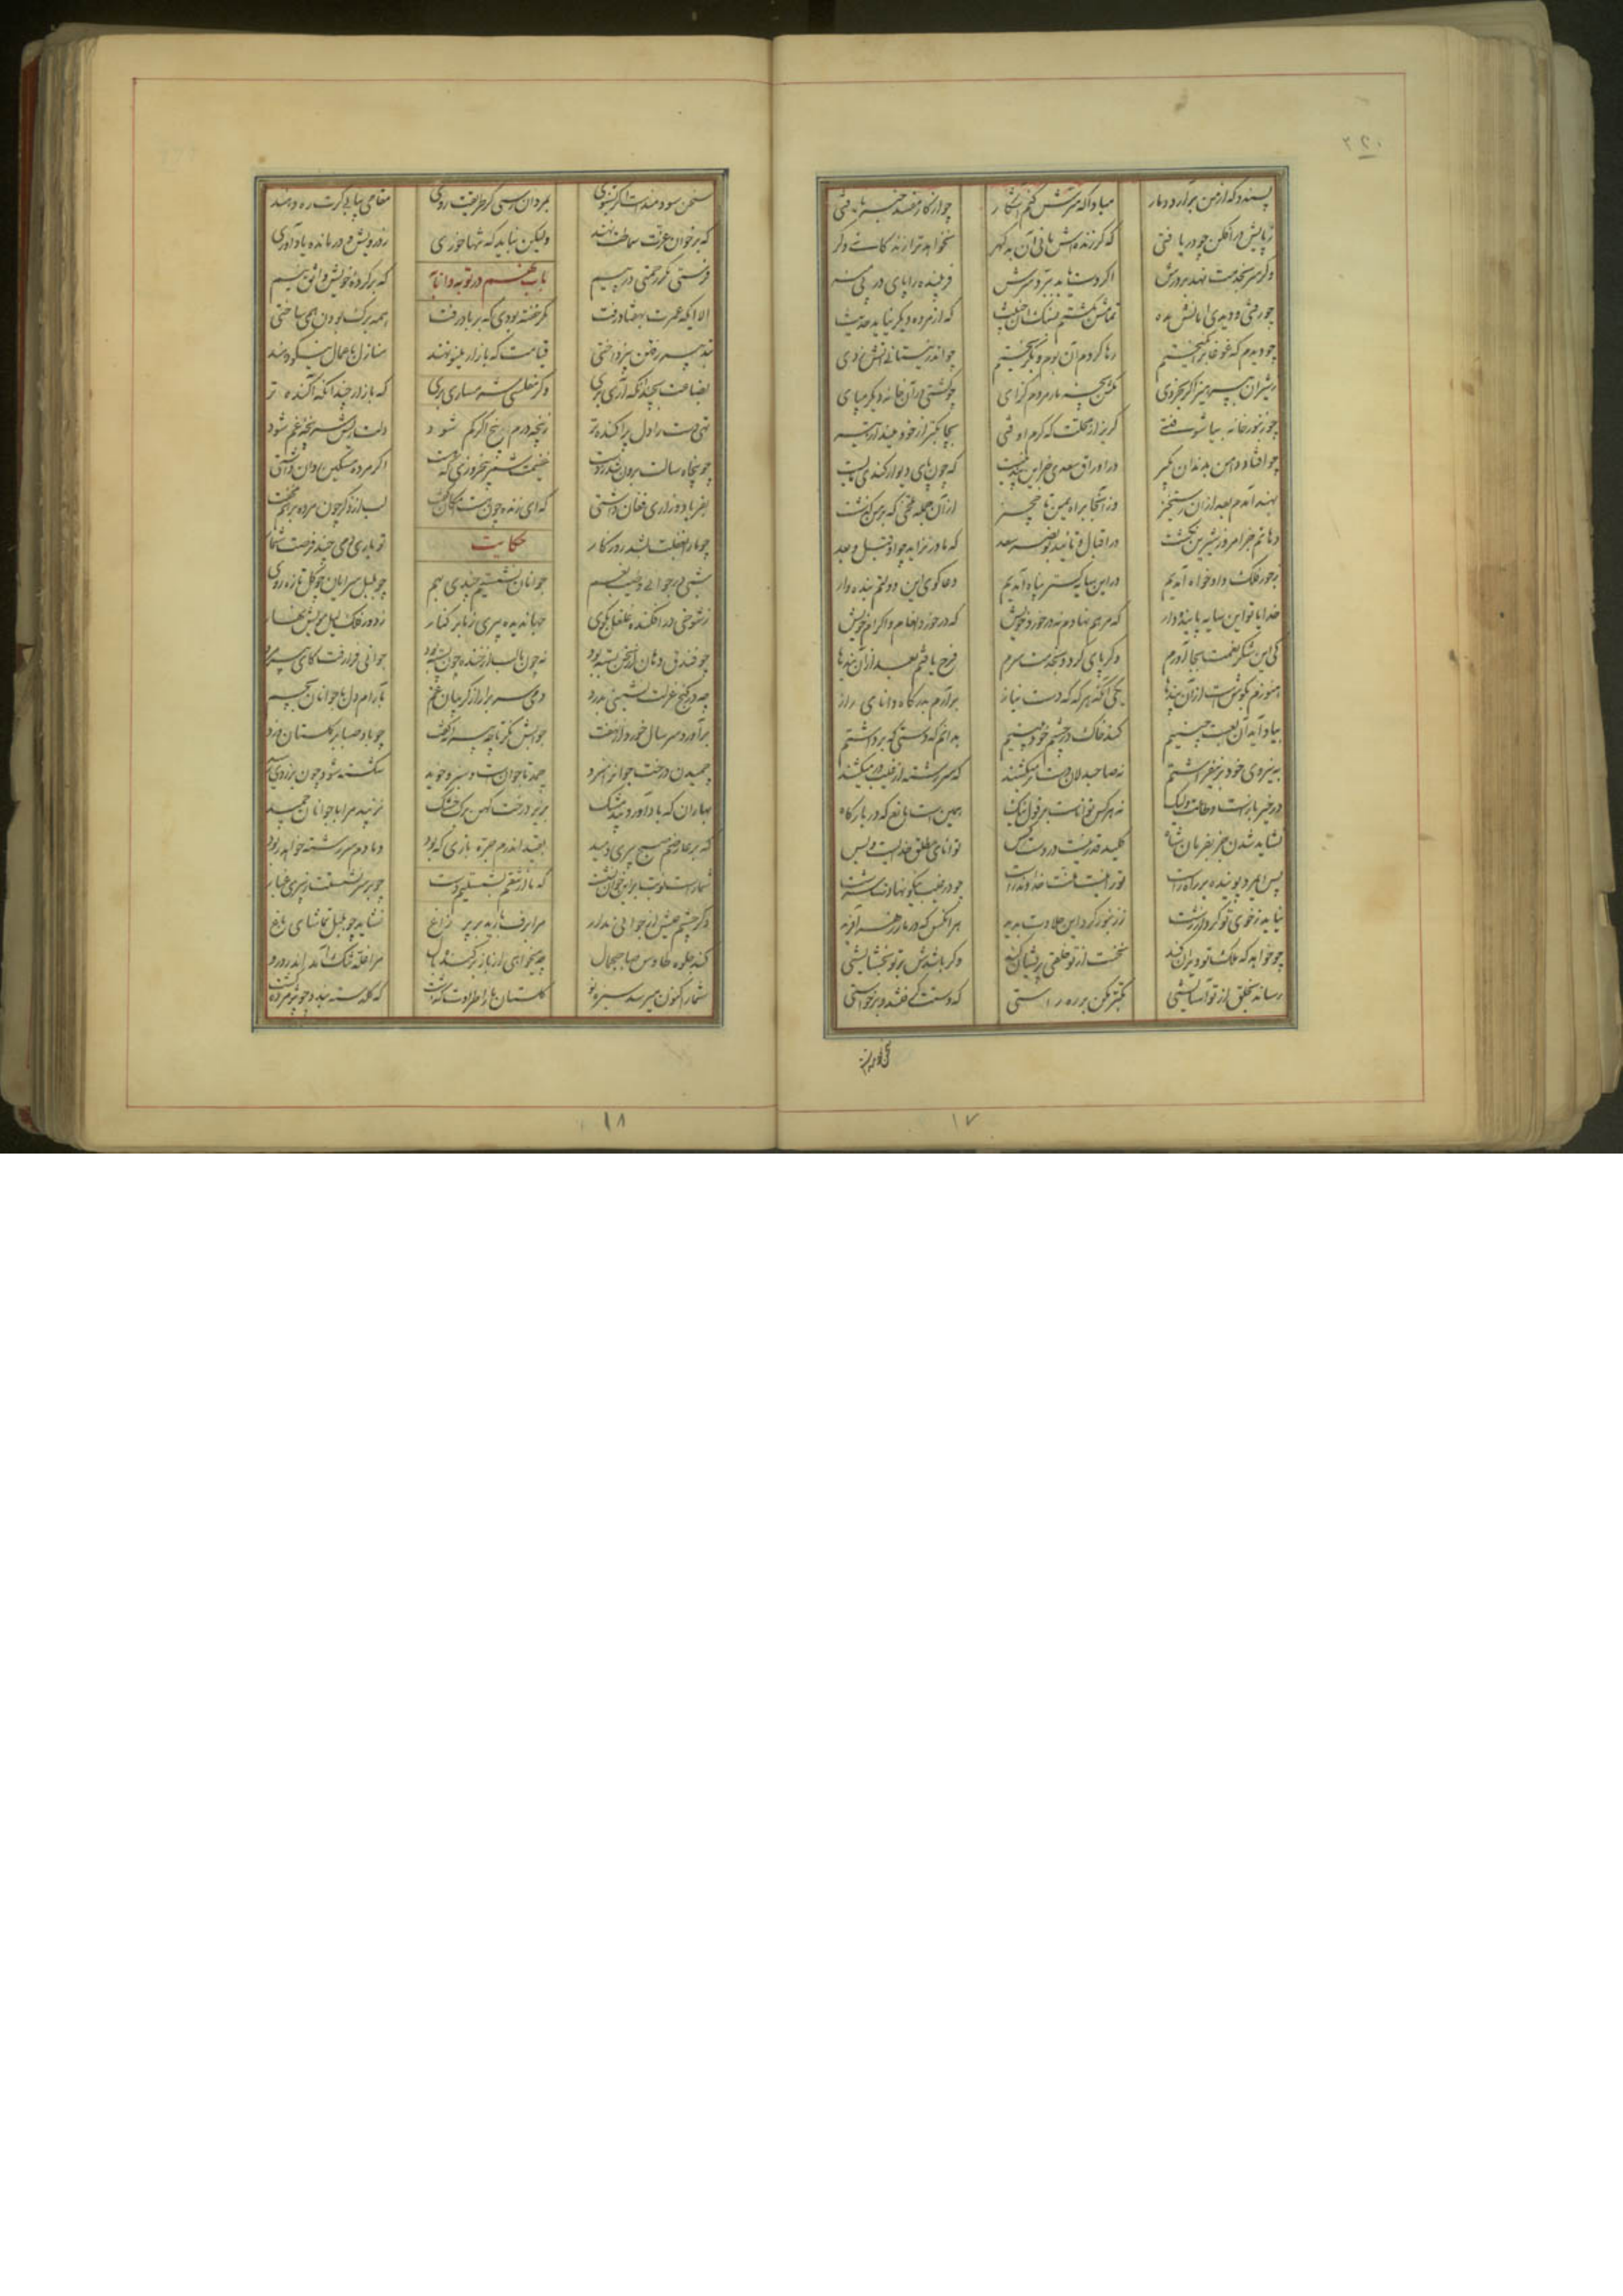 ۳۲۰
پسندد که از من برآرد دمار مبادا که سرش کنم آشکار چو از کار مفسد خبر یافتی
ز پایش درافکن چو دریافتی که گر زنده اش مانی آن بد گهر نخواهد ترا زندگانی دگر
وگر سر بخدمت نهد بر درش اگر دست یابد ببرد سرش فریبنده را پای در پی منه
چو رفتی و دیدی امانش مده تمامش بکشتم بسنگ آن خبیث که از مرده دیگر نیاید حدیث
چو دیدم که غوغا برانگیختم رها کردم آن بوم و بگریختم چو اندر نیستانی آتش زدی
ز شیران بپرهیز اگر بخردی مکش بچه مار مردم گزای چو کشتی در آن خانه دیگر مپای
چو زنبور خانه بیاشوفتی گریز از محلت که گرم اوفتی بچابکتر از خود مینداز تیر
چو افتاد دامن بدندان بگیر در اوراق سعدی چنین پند نیست که چون پای دیوار کندی مایست
بهند آمدم بعد از آن رستخیز وز آنجا براه یمن تا حجیز از آن جمله سختی که بر من گذشت
دهانم جز امروز شیرین نگشت در اقبال و تائید بوبکر سعد که مادر نزاید چو او قبل و بعد
ز جور فلک دادخواه آمدیم در این سایه گستر پناه آمدیم دعا گوی این دولتم بنده وار
خدایا تو این سایه پاینده دار که مرهم نهادم نه در خورد خویش که در خورد انعام و اکرام خویش
کی این شکر نعمت بجا آورم وگر پای گردد بخدمت سرم فرج یافتم بعد از آن بندها
هنوزم بگوش است از آن پندها یکی آنکه هر گه که دست نیاز برآرم بدرگاه دانای راز
بیاد آید آن لعبت چینیم کند خاک در چشم خود بینیم بدانم که دستی که برداشتم
به نیروی خود بر نیفراشتم نه صاحبدلان دست بر میکشند که سررشته از غیب در میکشند
در خیر بازست و طاعت ولیک نه هر کس تواناست بر فعل نیک همین است مانع که در بارگاه
نشاید شدن جز بفرمان شاه کلید قدر نیست در دست کس توانای مطلق خدایست و بس
پس ای مرد پوینده بر راه راست تو را نیست منت خداوند راست چو در غیب نیکو نهادت سرشت
نیاید ز خوی تو کردار زشت ز زنبور کرد این حلاوت پدید هر آنکس که در مار زهر آفرید
چو خواهد که ملک تو ویران کند نخست از تو خلقی پریشان کند وگر باشدش بر تو بخشایشی
رساند بخلق از تو آسایشی تکبر مکن بر ره راستی که دستت گرفتند و برخواستی
۱۷
سخن سودمندست اگر بشنوی بمردان رسی گر طریقت روی مقامی بیابی گرت ره دهند
که بر خوان عزت سماطت نهند ولیکن نباید که تنها خوری ز درویش درمانده یاد آوری
فرستی مگر رحمتی در پیم باب نهم در توبه و انابت که بر کرده خویش واثق نیم
الا ایکه عمرت بهفتاد رفت مگر خفته بودی که بر باد رفت همه برگ بودن همی ساختی
بتدبیر رفتن نپرداختی قیامت که بازار مینو نهند منازل باعمال نیکو دهند
بضاعت بچندانکه آری بری وگر مفلسی شرمساری بری که بازار چندانکه آکنده تر
تهی دست را دل پراکنده تر ز پنجه درم پنج اگر کم شود دلت ریش سرپنجه غم شود
چو پنجاه سالت برون شد ز دست غنیمت شمر پنج روزی که هست اگر مرده مسکین زبان داشتی
بفریاد و زاری فغان داشتی که ای زنده چون هست امکان گفت لب از ذکر چون مرده بر هم مخفت
چو ما را بغفلت بشد روزگار حکایت تو باری دمی چند فرصت شمار
شبی در جوانی و طیب نعم جوانان نشستیم چندی بهم چو بلبل سرایان چو گل تازه روی
ز شوخی در افکنده غلغل بکوی جهاندیده پیری ز ما بر کنار ز دور فلک لیل مویش نهار
چو فندق دهان از سخن بسته بود نه چون ما لب از خنده چون پسته بود جوانی فرا رفت کای پیرمرد
چه در کنج عزلت نشینی بدرد دمی سر برآر از گریبان غم بآرام دل با جوانان بچم
برآورد سر سال خورد از نهفت جوابش نگر تا چه پیرانه گفت چو باد صبا بر گلستان وزد
چمیدن درخت جوانرا سزد چمد تا جوانست و سرسبز خوید شکسته شود چون بزردی رسید
بهاران که باد آورد بیدمشک بریزد درخت کهن برگ خشک نزیبد مرا با جوانان چمید
که بر عارضم صبح پیری دمید بقید اندرم جره بازی که بود دمادم سر رشته خواهد ربود
شماراست نوبت بر این خوان نشست که ما از تنعم بشستیم دست چو بر سر نشست از پیری غبار
دگر چشم عیش از جوانی مدار مرا برف باریده بر پر زاغ نشاید چو بلبل تماشای باغ
کند جلوه طاوس صاحب جمال چه میخواهی از باز برکنده بال مرا غله تنگ آمد اندر درو
شما را کنون میرسد سبزه نو گلستان ما را طراوت گذشت که گلدسته بندد چو پژمرده گشت
۱۸